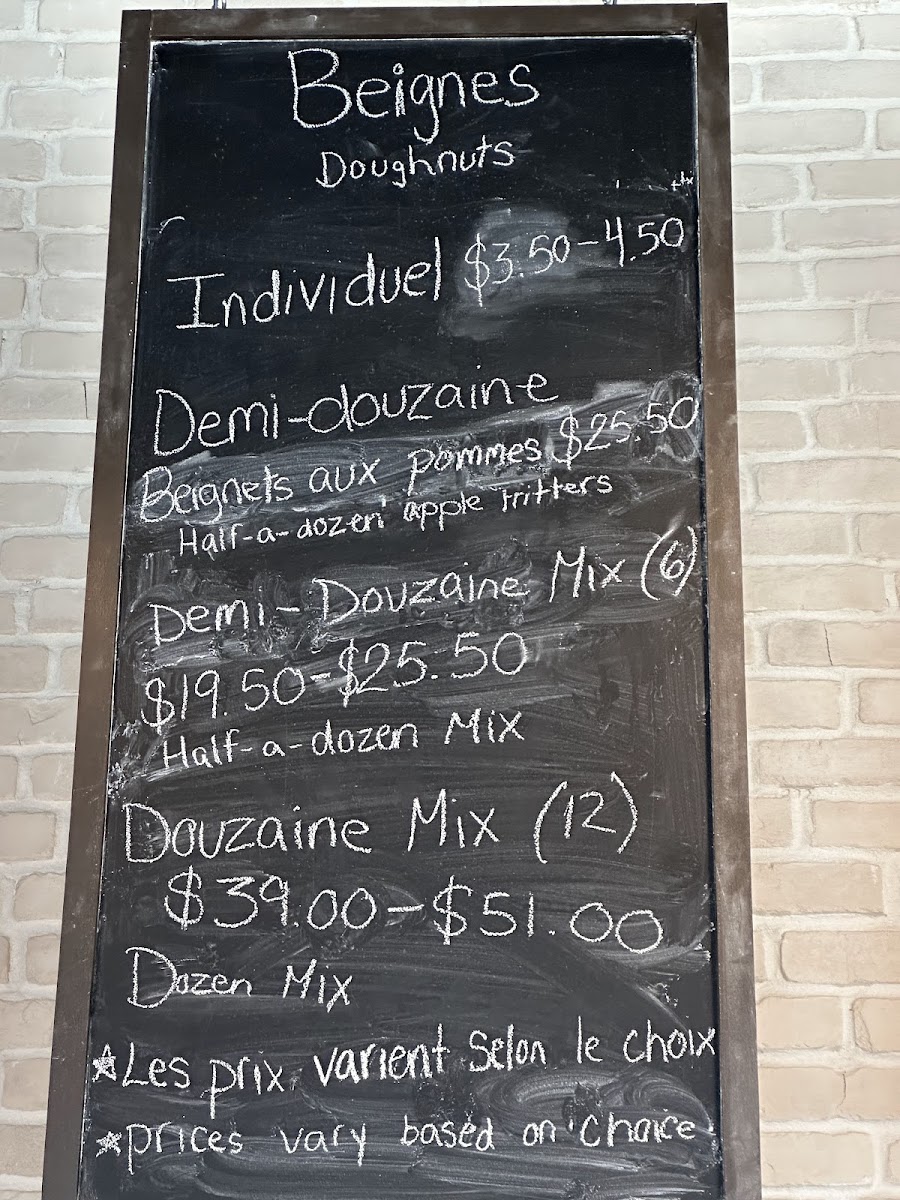 Beignes
Doughnuts
Individuel $3.50-4.50
+tx
Demi-douzaine
Beignets aux pommes $25.50
Half-a-dozen apple fritters
Demi-Douzaine Mix (6)
$19.50-$25.50
Half-a-dozen Mix
Douzaine Mix (12)
$39.00-$51.00
Dozen Mix
☆Les prix varient selon le choix
☆prices vary based on choice